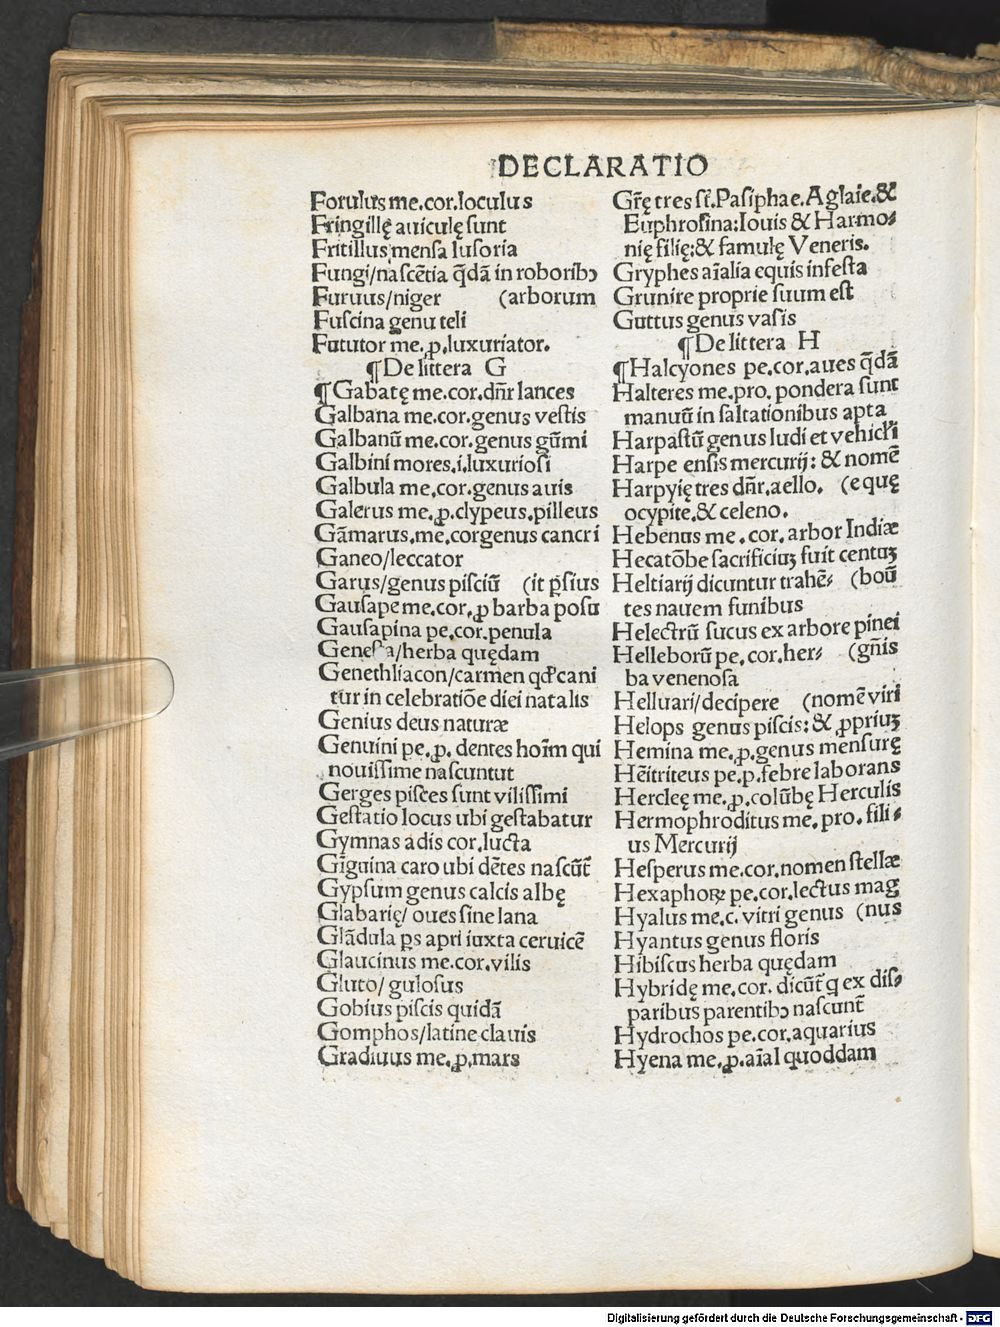 DECLARATIO
Forulus me.cor.loculus
Fringillę auiculę sunt
Fritillus mensa lusoria
Fungi/nascẽtia q̃dã in roboribꝰ
Furuus/niger (arborum
Fuscina genu teli
Fututor me.ꝓ.luxuriator.
¶De littera G
¶Gabatę me.cor.dn̄r lances
Galbana me.cor.genus vestis
Galbanũ me.cor.genus gũmi
Galbini mores.i.luxuriosi
Galbula me.cor.genus auis
Galerus me.ꝓ.clypeus.pilleus
Gãmarus.me.corgenus cancri
Ganeo/leccator
Garus/genus pisciũ (it ꝑsius
Gausape me.cor.ꝓ barba posu
Gausapina pe.cor.penula
Genesta/herba quędam
Genethliacon/carmen qď cani
tur in celebratiõe diei natalis
Genius deus naturæ
Genuini pe.ꝓ. dentes hoīm qui
nouissime nascuntut
Gerges pisces sunt vilissimi
Gestatio locus ubi gestabatur
Gymnas adis cor.lucta
Gīguina caro ubi dẽtes nascũt̃
Gypsum genus calcis albę
Glabarię/ oues sine lana
Glãdula ꝑs apri iuxta ceruicẽ
Glaucinus me.cor.vilis
Gluto/ gulosus
Gobius piscis quidã
Gomphos/latine clauis
Gradiuus me.ꝓ.mars
Gr̃ę tres st̃.Pasiphae.Aglaie.&
Euphrosina:Iouis & Harmo⸗
nię filię:& famulę Veneris.
Gryphes aīalia equis infesta
Grunire proprie suum est
Guttus genus vasis
¶De littera H
¶Halcyones pe.cor.aues q̃dã
Halteres me.pro. pondera sunt
manuũ in saltationibus apta
Harpastũ genus ludi et vehicľi
Harpe ensis mercurij: & nomẽ
Harpyię tres dn̄r.aello. (equę
ocypite.& celeno.
Hebenus me.cor.arbor Indiæ
Hecatõbe sacrificiuꝫ fuit centuꝫ
Heltiarij dicuntur trahẽ⸗ (boũ
tes nauem funibus
Helectrũ sucus ex arbore pinei
Helleborũ pe.cor.her⸗ (gn̄is
ba venenosa
Helluari/decipere (nomẽ viri
Helops genus piscis:& ꝓpriuꝫ
Hemina me.ꝓ.genus mensurę
Hẽitriteus pe.p.febre laborans
Hercleę me.ꝓ.colũbę Herculis
Hermophroditus me.pro.fili⸗
us Mercurij
Hesperus me.cor.nomen stellæ
Hexaphoꝝ pe.cor.lectus mag
Hyalus me.c.vitri genus (nus
Hyantus genus floris
Hibiscus herba quędam
Hybridę me.cor. dicũt̃ q ex dis⸗
paribus parentibꝰ nascunt̃
Hydrochos pe.cor.aquarius
Hyena me.ꝓ.aīal quoddam
Digitalisierung gefördert durch die Deutsche Forschungsgemeinschaft - DFG